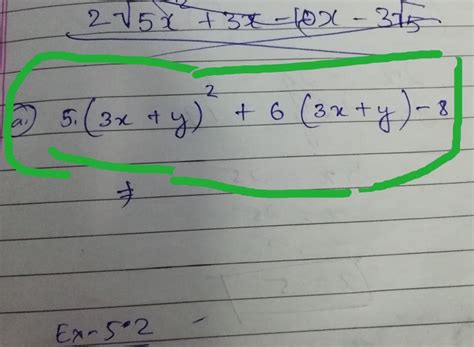 2√5x + 3x - 10x - 3√5
a.) 5.(3x + y)² + 6 (3x + y) - 8
Ex-5.2